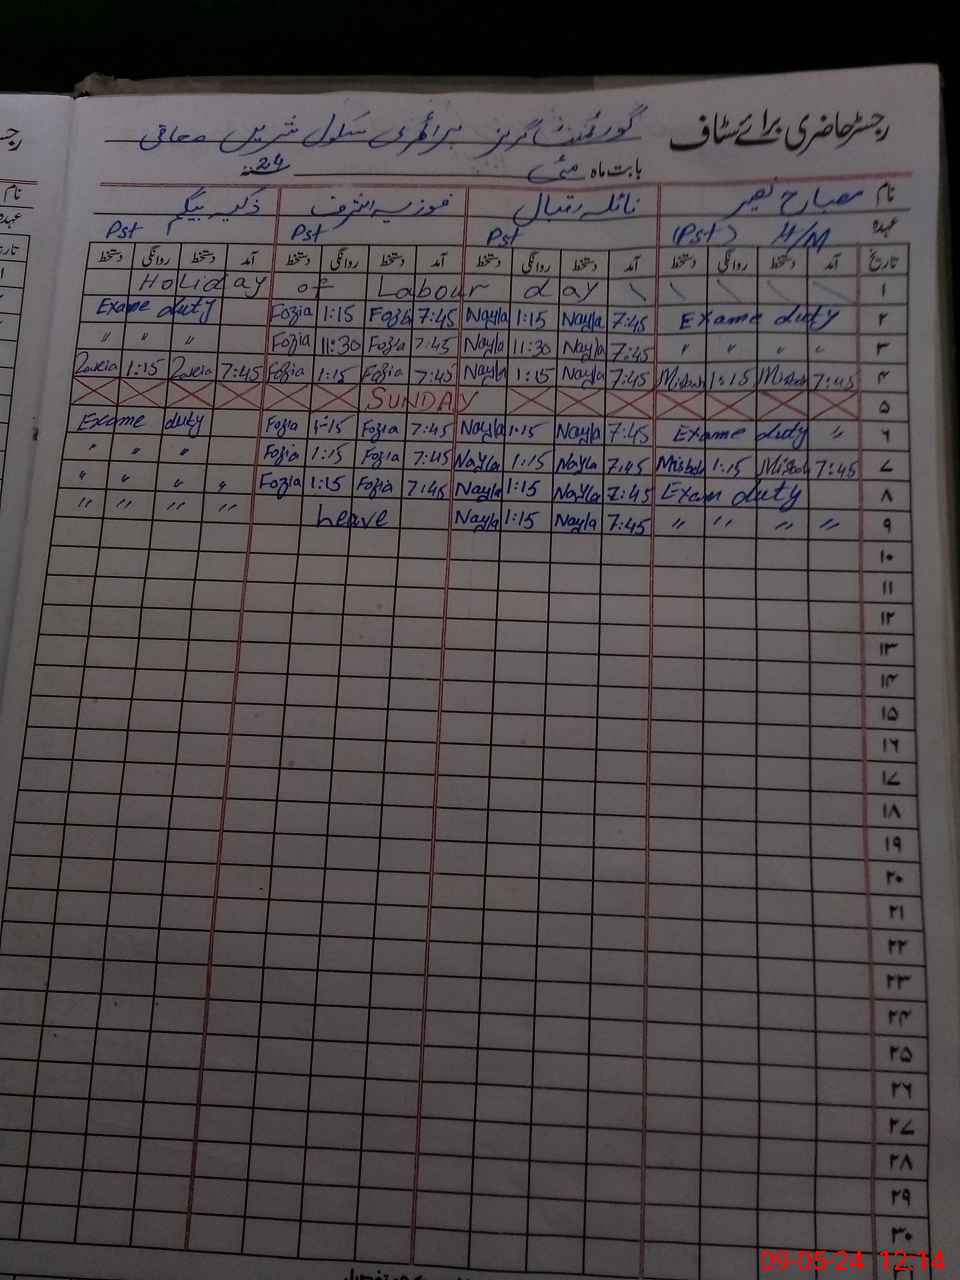 رجسٹر حاضری برائے سٹاف گورنمنٹ گرلز پرائمری سکول شریں
بابت ماہ مئی 24
نام مصباح نصیر نائلہ اقبال فوزیہ اشرف ذکیہ بیگم
عہدہ H/M (Pst) Pst Pst Pst
تاریخ آمد دستخط روانگی دستخط آمد دستخط روانگی دستخط آمد دستخط روانگی دستخط آمد دستخط روانگی دستخط
Holiday of Labour day \ \ \ \ \ ۱
Exame duty Fozia 1:15 Fozia 7:45 Nayla 1:15 Nayla 7:45 Exame duty ۲
" " " Fozia 11:30 Fozia 7:45 Nayla 11:30 Nayla 7:45 " " " " ۳
Zakia 1:15 Zakia 7:45 Fozia 1:15 Fozia 7:45 Nayla 1:15 Nayla 7:45 Misbah 1:15 Misbah 7:45 ۴
SUNDAY ۵
Exame duty Fozia 1:15 Fozia 7:45 Nayla 1:15 Nayla 7:45 Exame duty " ۶
" " " Fozia 1:15 Fozia 7:45 Nayla 1:15 Nayla 7:45 Misbah 1:15 Misbah 7:45 ۷
" " " " Fozia 1:15 Fozia 7:45 Nayla 1:15 Nayla 7:45 Exam duty ۸
" " " " Leave Nayla 1:15 Nayla 7:45 " " " " ۹
۱۰
۱۱
۱۲
۱۳
۱۴
۱۵
۱۶
۱۷
۱۸
۱۹
۲۰
۲۱
۲۲
۲۳
۲۴
۲۵
۲۶
۲۷
۲۸
۲۹
۳۰
09-05-24 12:14